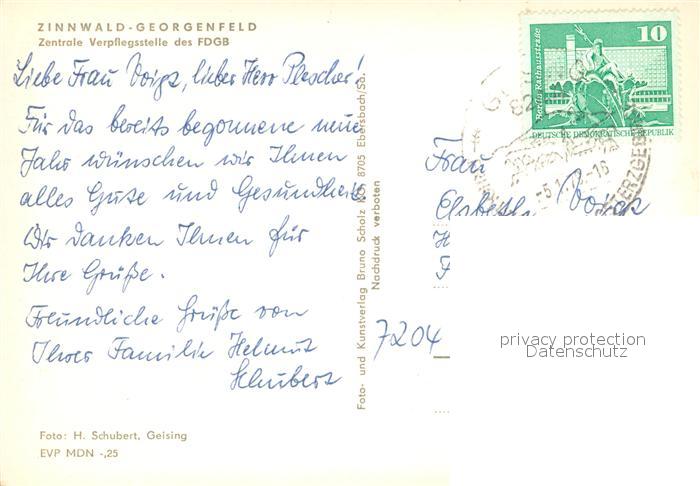 ZINNWALD-GEORGENFELD
Zentrale Verpflegsstelle des FDGB
Liebe Frau Voigt, lieber Herr Plescher!
Für das bereits begonnene neue
Jahr wünschen wir Ihnen
alles Gute und Gesundheit
Wir danken Ihnen für
Ihre Grüße.
Freundliche Grüße von
Ihrer Familie Helmut
Schubert
Foto: H. Schubert, Geising
EVP MDN -,25
Foto- und Kunstverlag Bruno Scholz KG, 8705 Ebersbach/Sa.
Nachdruck verboten
10
Berlin, Rathausstraße
DEUTSCHE DEMOKRATISCHE REPUBLIK
Frau
Voigt
7204
privacy protection
Datenschutz